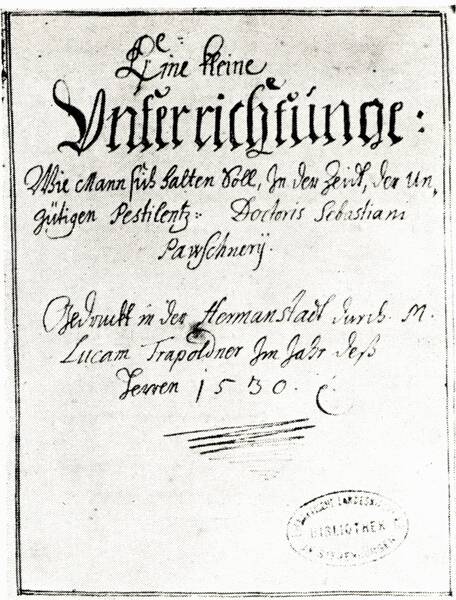 Eine kleine
Unterrichtunge:
Wie Mann sich halten Soll, In der Zeidt, der Un,
gütigen Pestilentz: Doctoris Sebastiani
Pawschnerij.
Gedruckt in der Hermanstadt durch M.
Lucam Trapoldner Im Jahr deß
Herren 1530.
BIBLIOTHEK